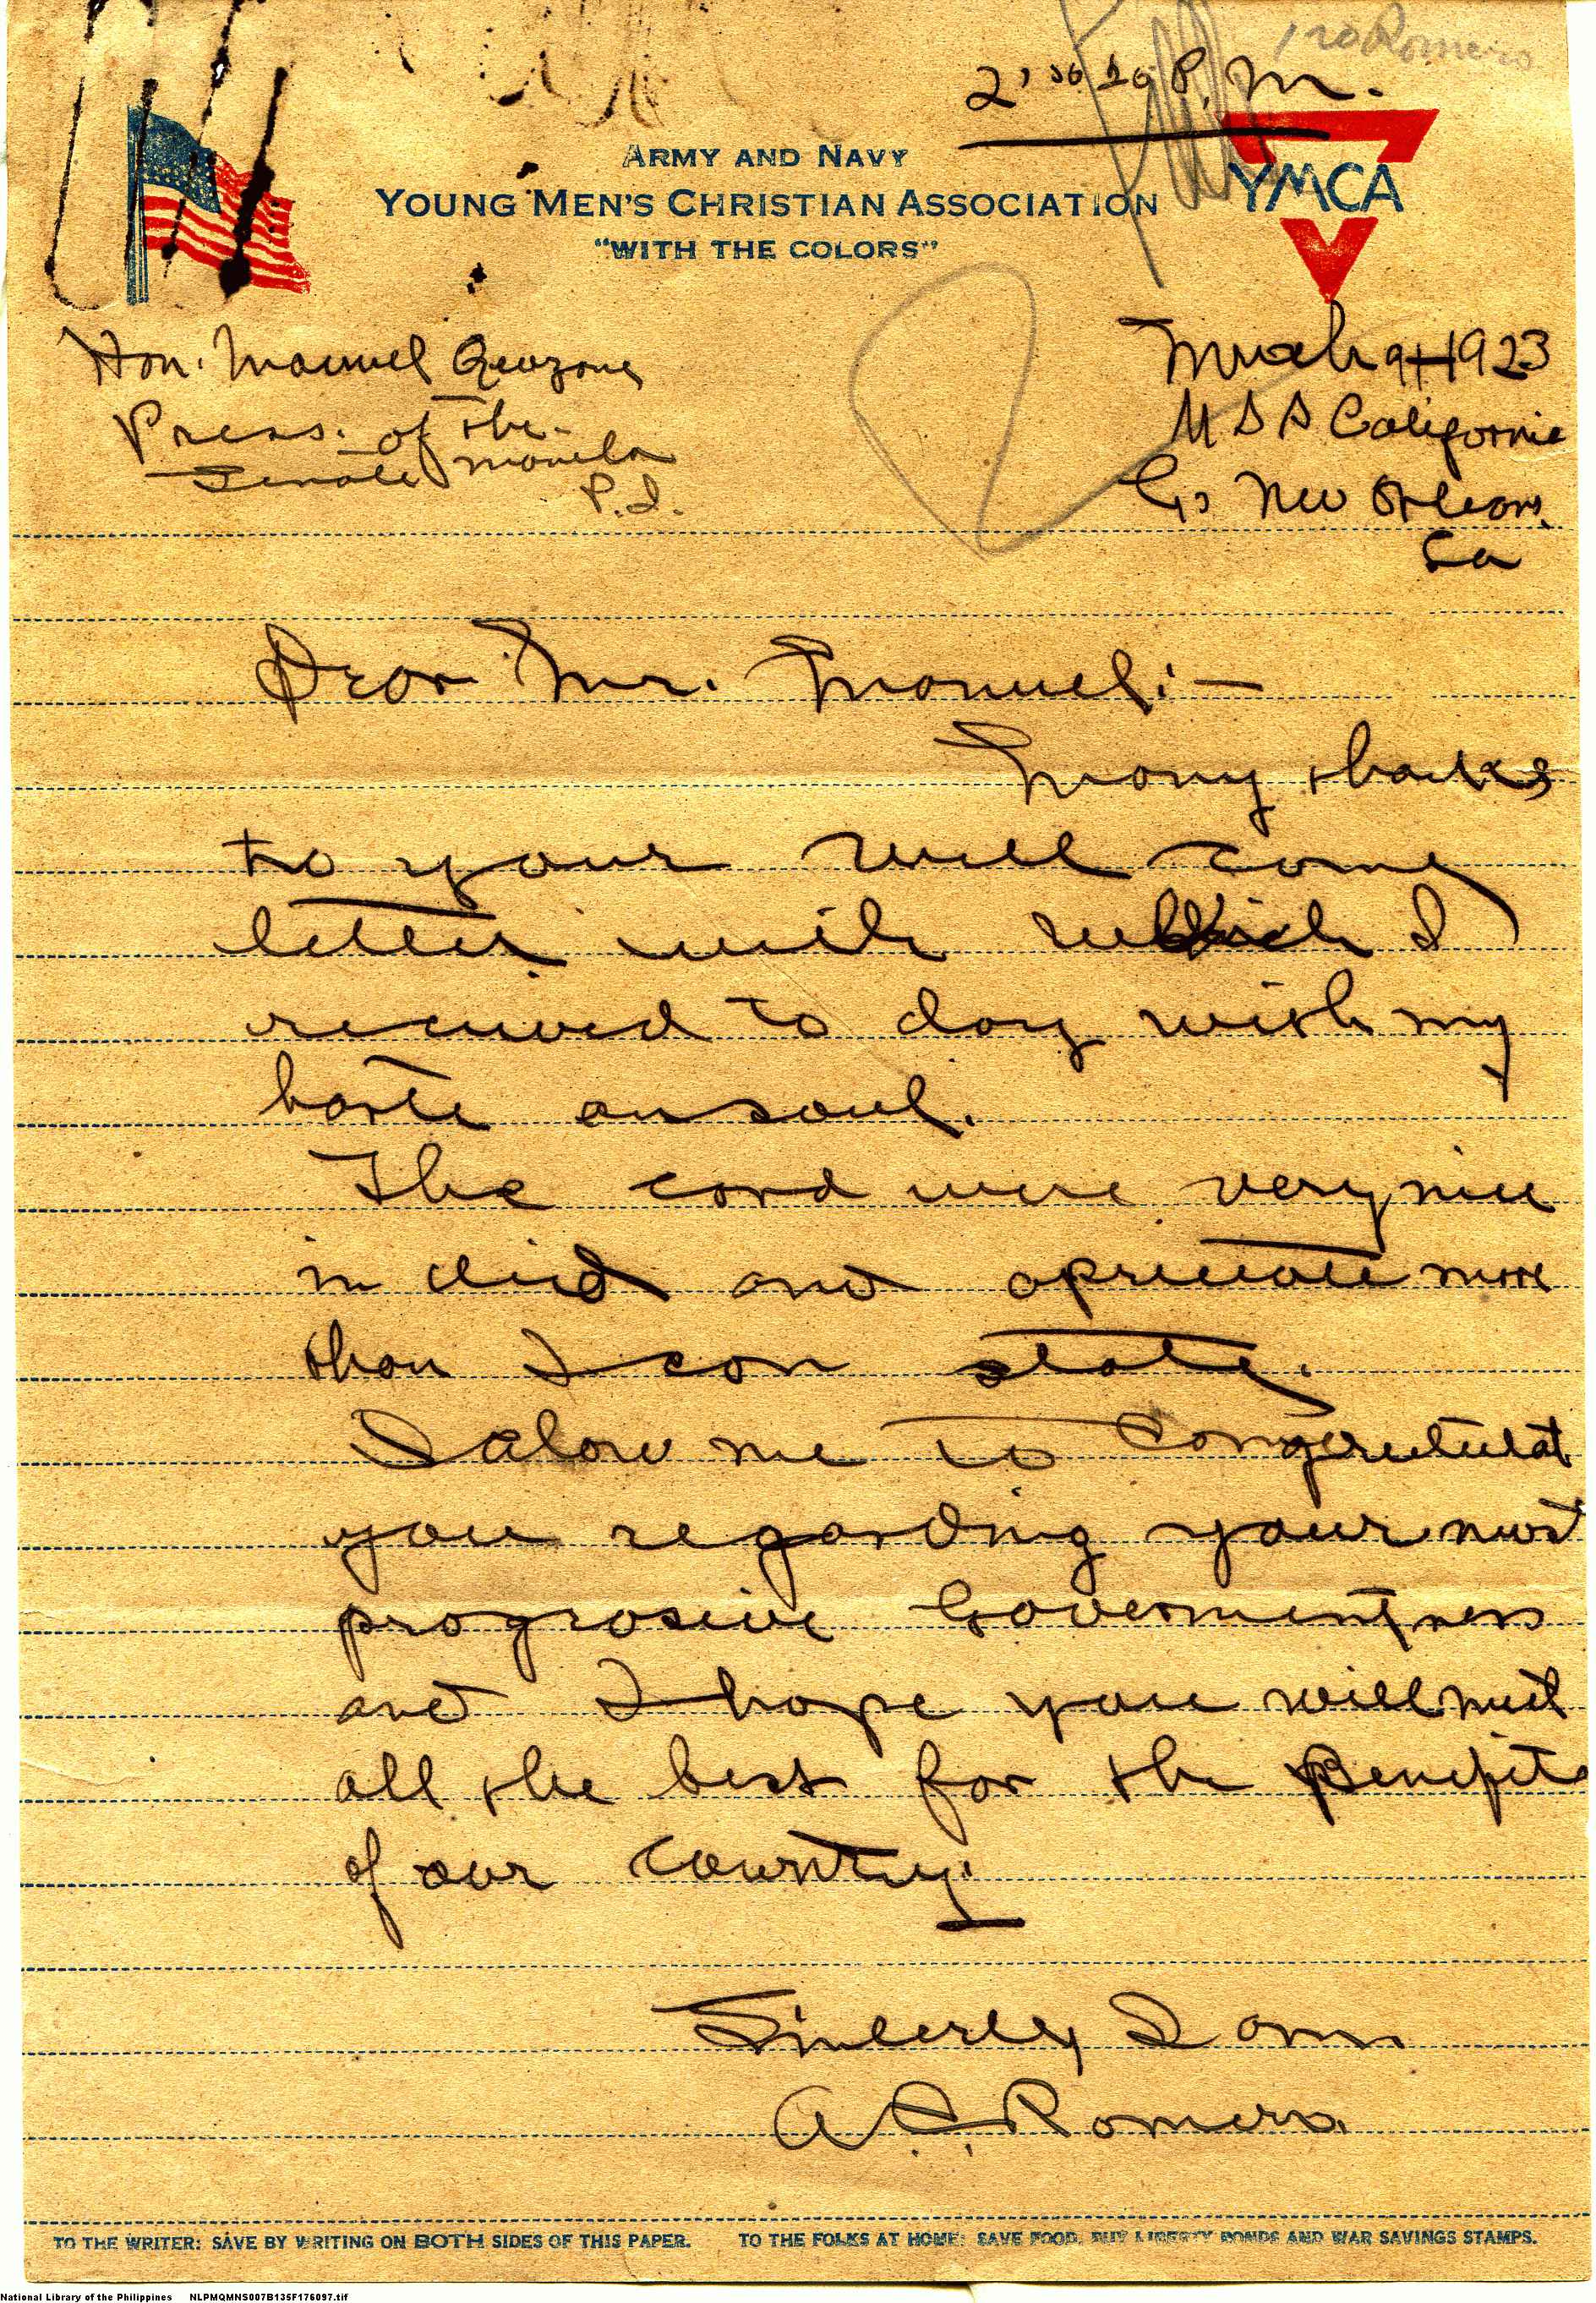 Romero
P.M.
ARMY AND NAVY
YOUNG MEN'S CHRISTIAN ASSOCIATION
"WITH THE COLORS"
YMCA
Hon. Manuel
March 9th 1923
Press. of the
Senate Manila
P.I.
U S S California
New Orleans,
La
Dear Mr. Manuel:—
Many thanks
to your well come
letter with which I
received to day with my
harte an soul.
The card were very nice
in died and apreciate more
than I can state.
I alow me to Congrutulat
you regarding your most
progrosive Goverment
and I hope you will meet
all the best for the Benefits
of our country.
Sincerley I am
A. S. Romero.
TO THE WRITER: SAVE BY WRITING ON BOTH SIDES OF THIS PAPER. TO THE FOLKS AT HOME: SAVE FOOD, BUY LIBERTY BONDS AND WAR SAVINGS STAMPS.
National Library of the Philippines NLPMQMNS007B135F176097.tif